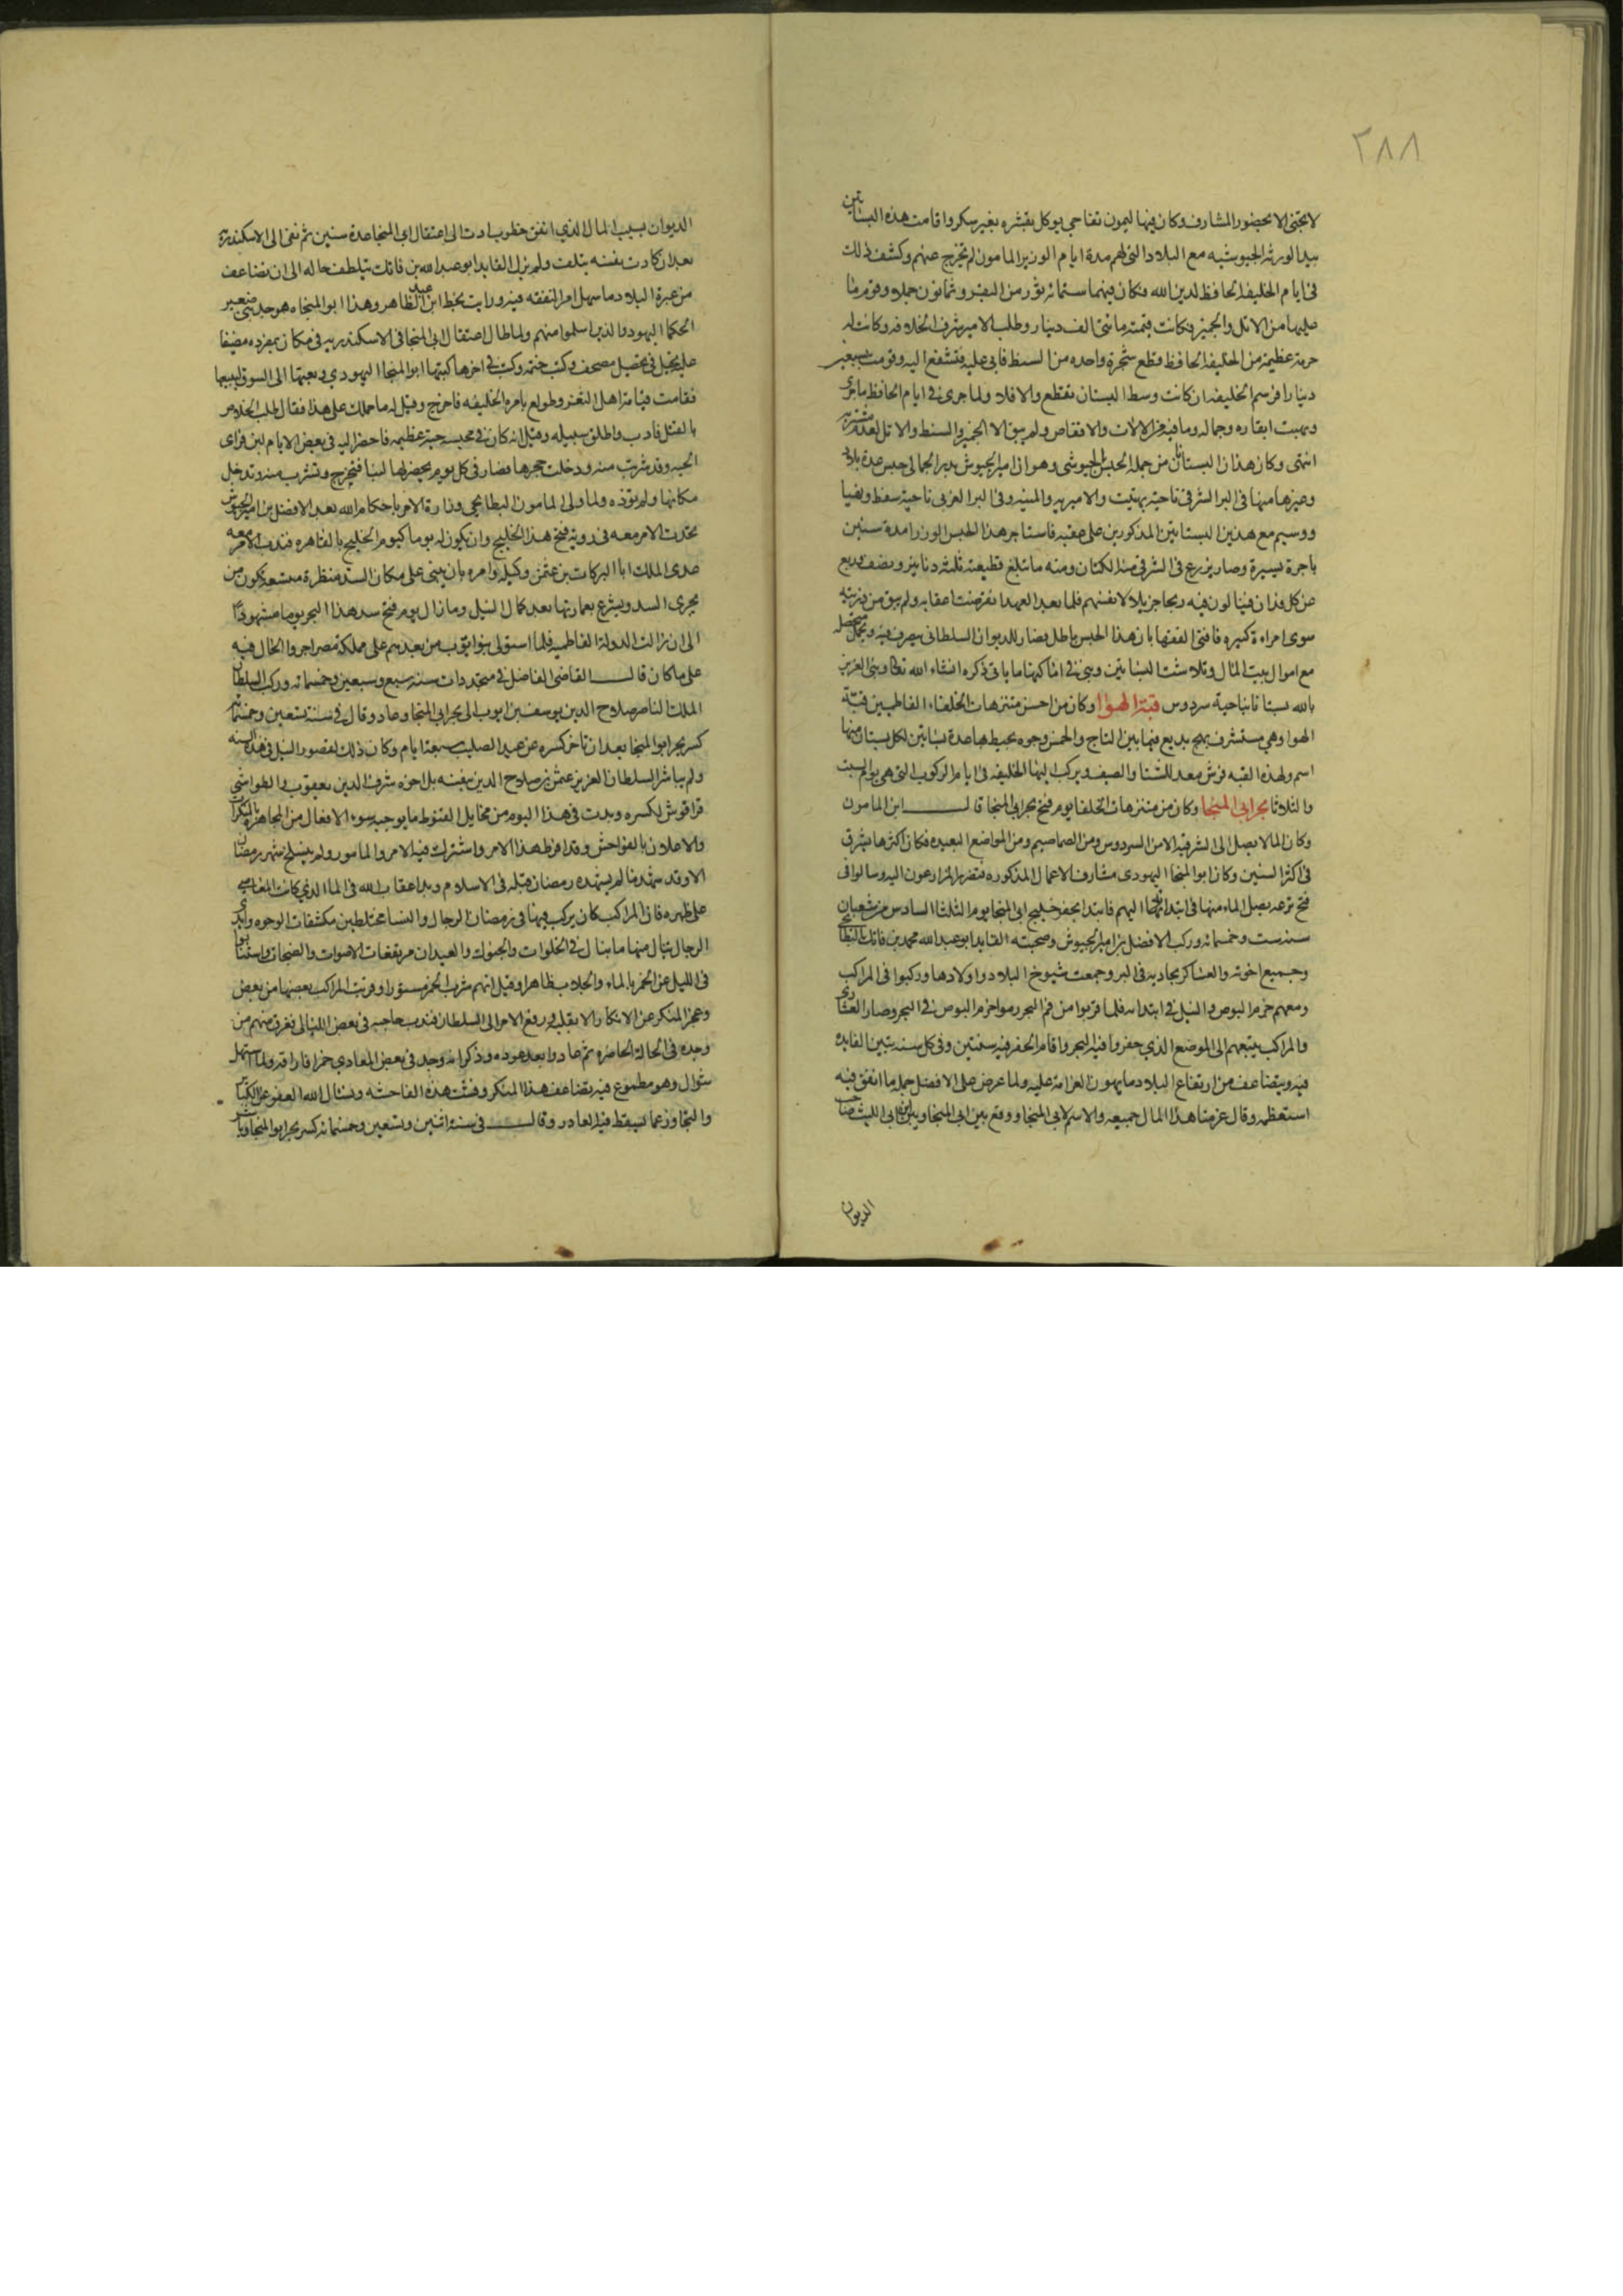 ٢٨٨
لا تجتنى الا بحضور المشارف وكان فيها ليمون تفاحي يوكل بقشره بغير سكر واقامت هذه البساتين
بيد الورثه الجيوشيه مع البلاد التي لهم مدة ايام الوزير المامون لم تخرج عنهم وكشف ذلك
في ايام الخليفه الحافظ لدين الله فكان فيهما ستمائه ثور من البقر وثمانون جملا وقوم ما
عليهما من الاثل والجميز فكانت قيمته مائتي الف دينار وطلب الامير شرف الخلافه وكانت له
حرمة عظيمه من الخليفه الحافظ قطع شجرة واحده من السنط فابى عليه فتشفع اليه وقومت بسبعين
دينارا فرسم الخليفه ان كانت وسط البستان تقطع والا فلا ولما جرى في ايام الحافظ ما جرى
ونهبت ابقاره وجماله وما فيه من الالات والانقاص ولم يبق الا الجميز والسنط والاثل لعدم مشتريه
انتهى وكان هذان البستانان من جملة الحبس الجيوشي وهو ان امير الجيوش بدر الجمالي حبس عدة بلاد
وغيرها منها في البر الشرقي ناحية بهتيت والاميريه والمنيه وفي البر الغربي ناحية سفط ونهيا
ووسيم مع هذين البستانين المذكورين على عقبه فاستاجر هذا الحبس الوزرا مدة سنين
باجرة يسيرة وصار يزرع في الشرقي منه الكتان ومنه ما تبلغ قطيعته ثلثه دنانير ونصف وربع
عن كل فدان فينالون فيه ربحا جزيلا لانفسهم فلما بعد العهد انقرضت اعقابه ولم يبق من ذريته
سوى امراة كبيره فافتى الفقها بان هذا الحبس باطل فصار للديوان السلطاني يتصرف فيه ويحمل متحصله
مع اموال بيت المال وتلاشت البساتين وبني في اماكنها ما ياتي ذكره انشاء الله تعالى وبنى العزيز
بالله بستانا بناحية سردوس قبة الهوا وكان من احسن متنزهات الخلفاء الفاطميين قبة
الهوا وهي مستشرف بهج بديع فيما بين التاج والخمس وجوه يحيط بها عدة بساتين لكل بستان منها
اسم ولهذه القبه فرش معد للشتا والصيف ويركب اليها الخليفه في ايام الركوب التي هي يوم السبت
والثلاثا بحر ابي المنجا وكان من متنزهات الخلفا يوم فتح بحر ابي المنجا قال ابن المامون
وكان الما لا يصل الى الشرقيه الا من السردوس ومن الصماصم ومن المواضع البعيده فكان اكثرها يشرق
في اكثر السنين وكان ابو المنجا اليهودي مشارف الاعمال المذكوره فتضرر المزارعون اليه وسالوا في
فتح ترعه يصل الماء منها في ابتدائه اليهم فابتدا بحفر خليج ابي المنجا يوم الثلثا السادس من شعبان
سنه ست وخمسمائه وركب الافضل بن امير الجيوش وصحبته القايد ابو عبد الله محمد بن فاتك البطائحي
وجميع اخوته والعساكر بحاذيه في البر وجمعت شيوخ البلاد واولادها وركبوا في المراكب
ومعهم حزم البوص والنيل في ابتدائه فلما قربوا من فم البحر رموا حزم البوص في البحر وصار العشاري
والمراكب يتبعهم الى الموضع الذي حفروا فيه البحر واقام الحفر فيه سنتين وفي كل سنه يتبين الفايده
فيه ويتضاعف من ارتفاع البلاد ما يهون الغرامه عليه ولما عرض على الافضل جمله ما انفق فيه
استعظمه وقال غرمنا هذا المال جميعه والاسم لابي المنجا ووقع بين ابي المنجا وبين ابن ابي الليث صاحب
الديوان
الديوان بسبب المال الذي انفق خطوب ادت الى اعتقال ابي المنجا عدة سنين ثم نفي الى الاسكندرية
بعد ان كادت نفسه تتلف ولم يزل القايد ابو عبد الله بن فاتك يتلطف حاله الى ان تضاعف
من عبرة البلاد ما سهل امر النفقه فيه ورايت بخط ابن عبد الظاهر وهذا ابو المنجا هو جد بني صغير
الحكما اليهود والذين اسلموا منهم ولما طال اعتقال ابي المنجا في الاسكندريه في مكان بمفرده مضيقا
عليه تحيل في تحصيل مصحف وكتب ختمه وكتب في اخرها كتبها ابو المنجا اليهودي وبعثها الى السوق ليبيعها
فقامت قيامة اهل الثغر وطولع بامره الخليفه فاخرج وقيل له ما حملك على هذا فقال طلب الخلاص
بالقتل فادب واطلق سبيله وقيل انه كان في محبسه حية عظيمه فاحضر اليه في بعض الايام لبن فراى
الحيه وقد شربت منه ودخلت جحرها فصار في كل يوم يحضر لها لبنا فتخرج وتشرب منه وتدخل
مكانها ولم تؤذه ولما ولي المامون البطائحي وزارة الامر باحكام الله بعد الافضل بن امير الجيوش
تحدث الامر معه في روية فتح هذا الخليج وان يكون له يوما كيوم الخليج بالقاهره فندب الامر معه
عدي الملك ابا البركات بن عثمن وكيله وامره بان يبني على مكان السد منظرة متسعة تكون من
بحري السد ويشرع بعمارتها بعد كمال النيل وما زال يوم فتح سد هذا البحر يوما مشهودا
الى ان زالت الدولة الفاطميه فلما استولى بنو ايوب من بعدهم على مملكة مصر اجروا الحال فيه
على ما كان قال القاضي الفاضل في متجددات سنه سبع وسبعين وخمسمائه وركب السلطان
الملك الناصر صلاح الدين يوسف بن ايوب الى بحر ابي المنجا وعاد وقال في سنة تسعين وخمسمائه
كسر بحر ابو المنجا بعد ان تاخر كسره عن عيد الصليب بسبعة ايام وكان ذلك لقصور النيل في هذه السنه
ولم يباشر السلطان العزيز عثمن بن صلاح الدين بنفسه بل اخوه شرف الدين يعقوب والطواشي
قراقوش لكسره وبدت في هذا اليوم من مخايل القنوط ما يوجبه سوء الافعال من المجاهرة بالمنكرات
والاعلان بالفواحش وقد افرط هذا الامر واشترك فيه الامر والمامور ولم ينسلخ شهر رمضان
الا وقد شهد ما لم يشهده رمضان قبله في الاسلام وبدا عقاب الله في الما الذي كانت المعاصي
على ظهره فان المراكب كان يركب فيها في رمضان الرجال والنسا مختلطين مكشفات الوجوه وايدي
الرجال تنال منها ما تنال في الخلوات والجموك والعيدان مرتفعات الاصوات والصنجات واستنابوا
في الليل عن الخمر بالماء والجلاب ظاهرا وقيل انهم شربوا الخمر مستورا وقربت المراكب بعضها من بعض
وعجز المنكر عن الانكار الا بقلبه ورفع الامر الى السلطان فندب حاجبه في بعض الليالي ففرق منهم من
وجده في الحالة الحاضره ثم عادوا بعد عوده وذكر انه وجد في بعض المعادي خمرا فاراقه ولما استهل
شوال وهو مطموع فيه تضاعف هذا المنكر وفشت هذه الفاحشه ونسئال الله العفو عن الكبائر
والتجاوز عما تسقط فيه المعاذر وقال في سنة اثنين وتسعين وخمسمائه كسر بحر ابو المنجا وباشر